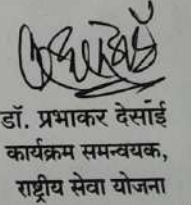 डॉ. प्रभाकर देसाई
कार्यक्रम समन्वयक,
राष्ट्रीय सेवा योजना